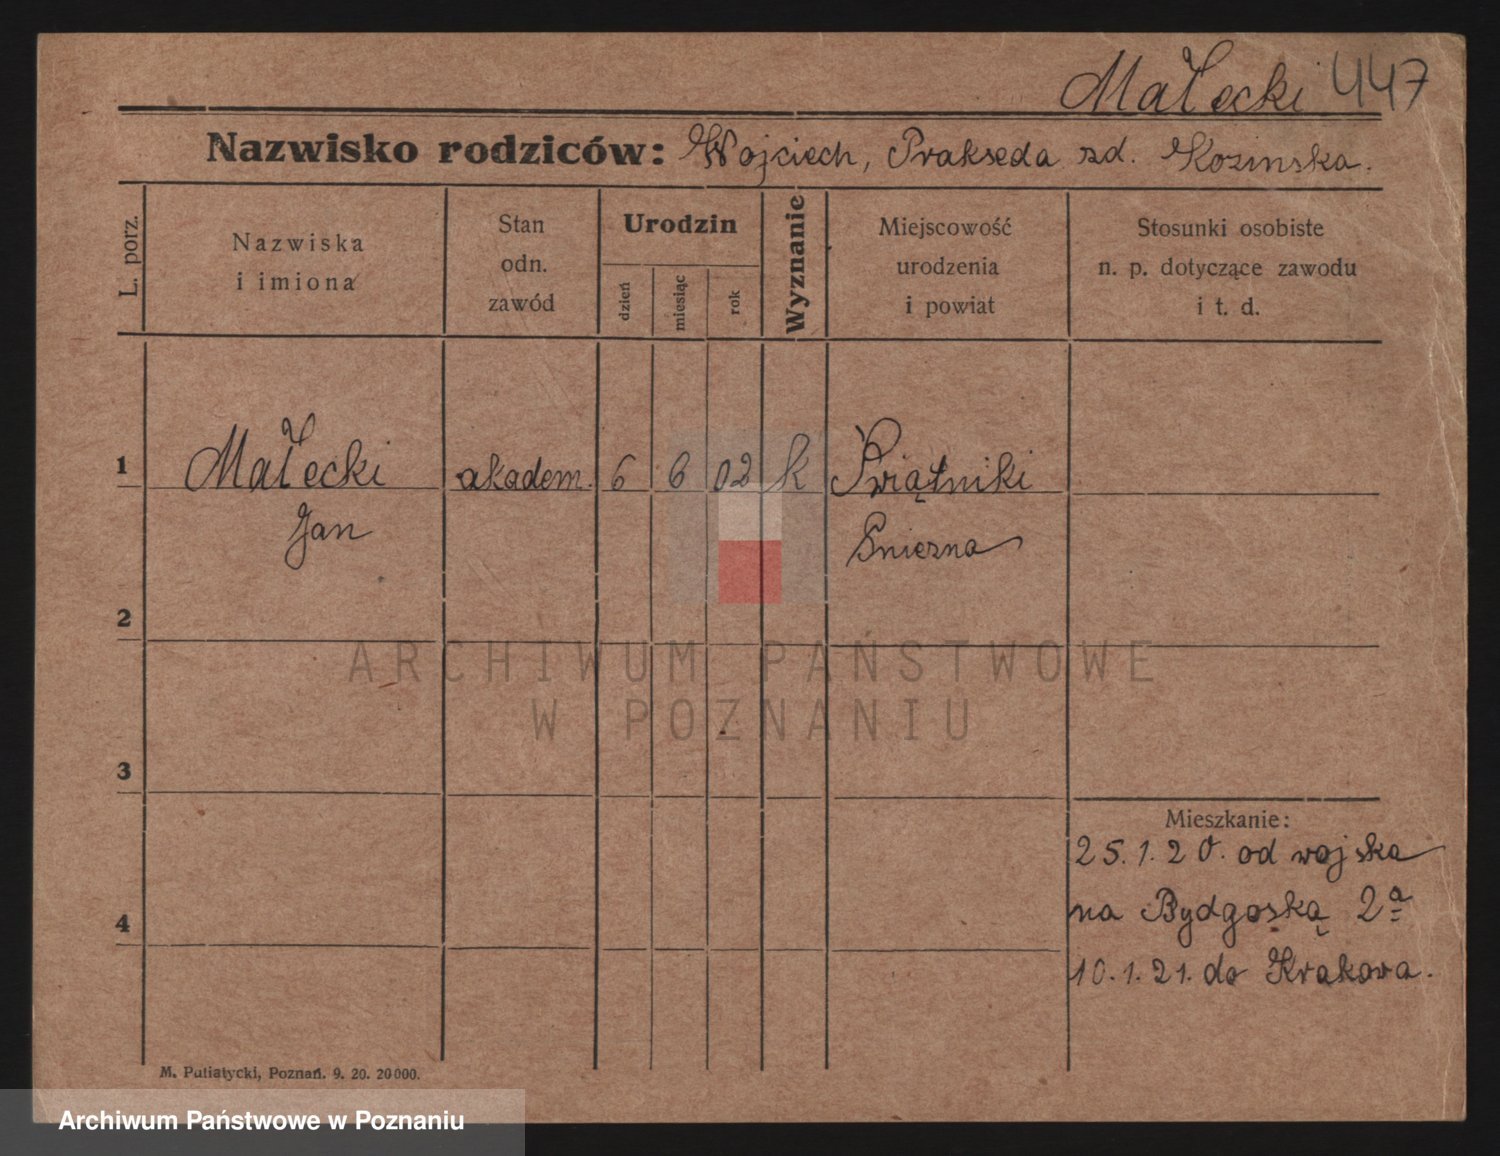 Małecki 447
Nazwisko rodziców: Wojciech, Prakseda zd. Kozinska.
L. porz.
Nazwiska
i imiona
Stan
odn.
zawód
Urodzin
dzień
miesiąc
rok
Wyznanie
Miejscowość
urodzenia
i powiat
Stosunki osobiste
n. p. dotyczące zawodu
i t. d.
1 Małecki akadem. 6 6 02 k Świątniki
Jan Gniezna
2
ARCHIWUM PAŃSTWOWE
W POZNANIU
3
Mieszkanie:
25.1.20. od wojska
4 na Bydgoską 2a
10.1.21. do Krakowa.
M. Putiatycki, Poznań. 9. 20. 20000.
Archiwum Państwowe w Poznaniu